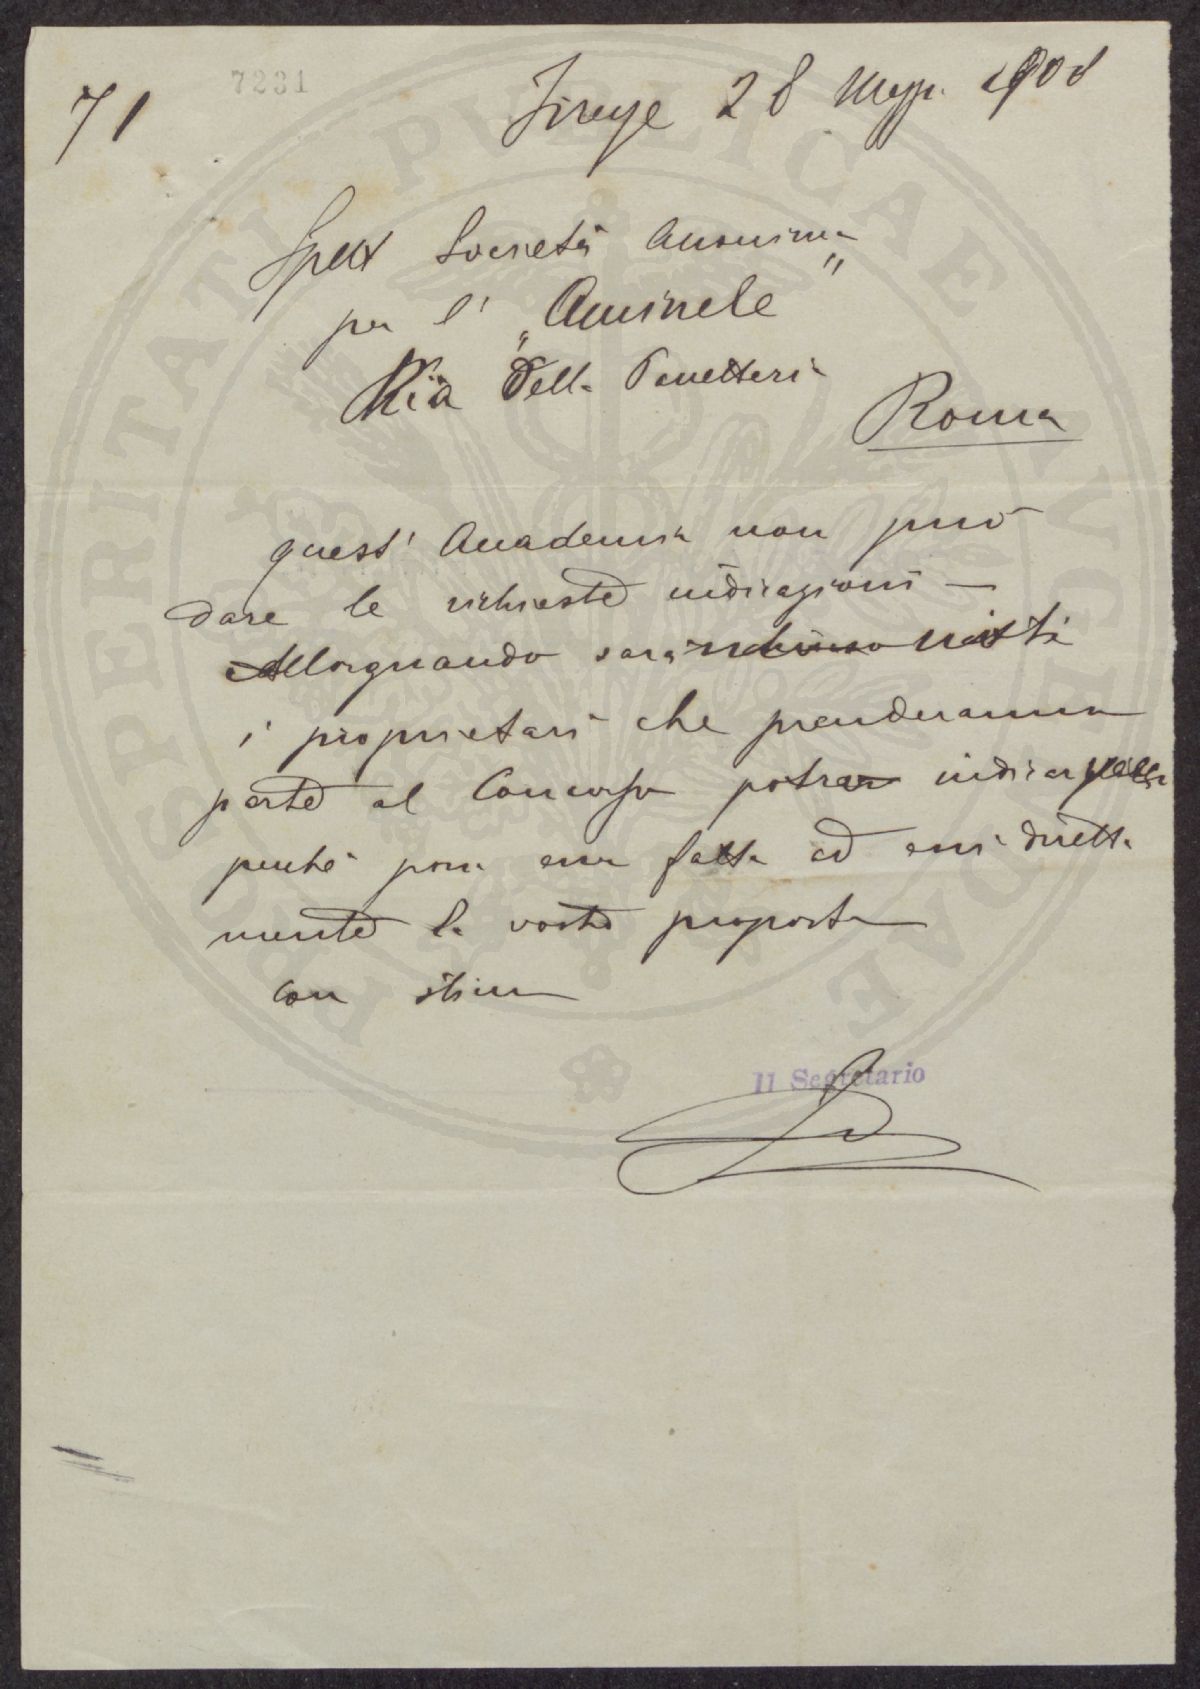 7231
71
Firenze 28 Magg. 1908
Spett Società Anonima
per l' "Aminele"
Via Della Panetteria
Roma
quest' Accademia non può
dare le richieste indicazioni —
Allorquando sarà
i proprietari che prenderanno
parte al Concorso potrà
perché possa esser fatta ad essi diretta
mente la vostra proposta
Con stima
Il Segretario
PROSPERITATI PVBLICAE AVGENDAE